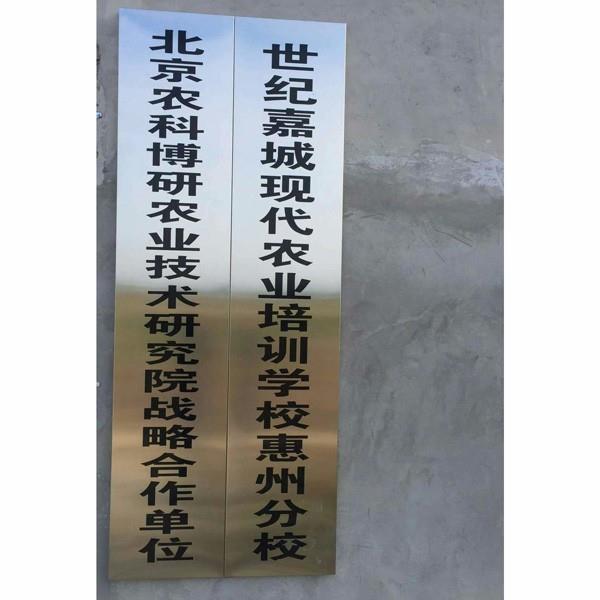 北京农科博研农业技术研究院战略合作单位
世纪嘉城现代农业培训学校惠州分校